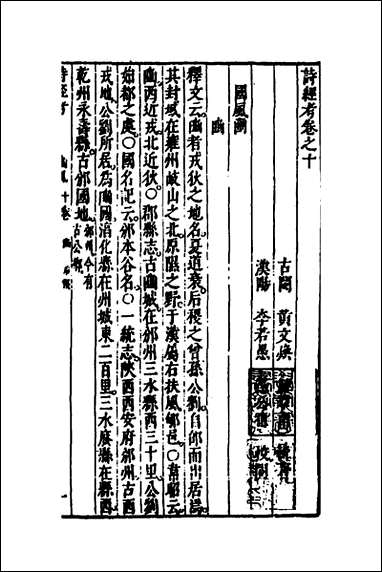 詩經考卷之十
古閩 黃文煥
漢陽 李若愚 校閱
國風豳
豳
釋文云豳者戎狄之地名夏道衰后稷之曾孫公劉自邰而出居焉
其封域在雍州岐山之北原隰之野于漢屬右扶風郇邑〇韋昭云
豳西近戎北近狄〇郡縣志古豳城在邠州三水縣西三十里公劉
始都之處〇國名記云邠本谷名〇一統志陝西西安府邠州古西
戎地公劉所居為豳國淯化縣在州城東二百里三水廢縣在縣西
乾州永壽縣古邠國地邠州今有古公鄉
詩經考 豳風 十卷 豳